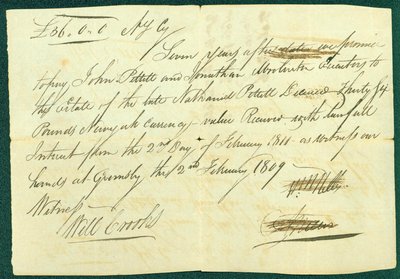 £36.0.0 NY Cy
Seven years after date we promise
to pay John Pettett and Jonathan Woolverton Executors to
the Estate of the late Nathaniel Pettett Deceased Thirty Six
Pounds New york Currency value Received with Lawfull
Interest from the 2nd Day of February 1811 as witness our
hands at Grimsby this 2nd February 1809
Witness
Will Crooks